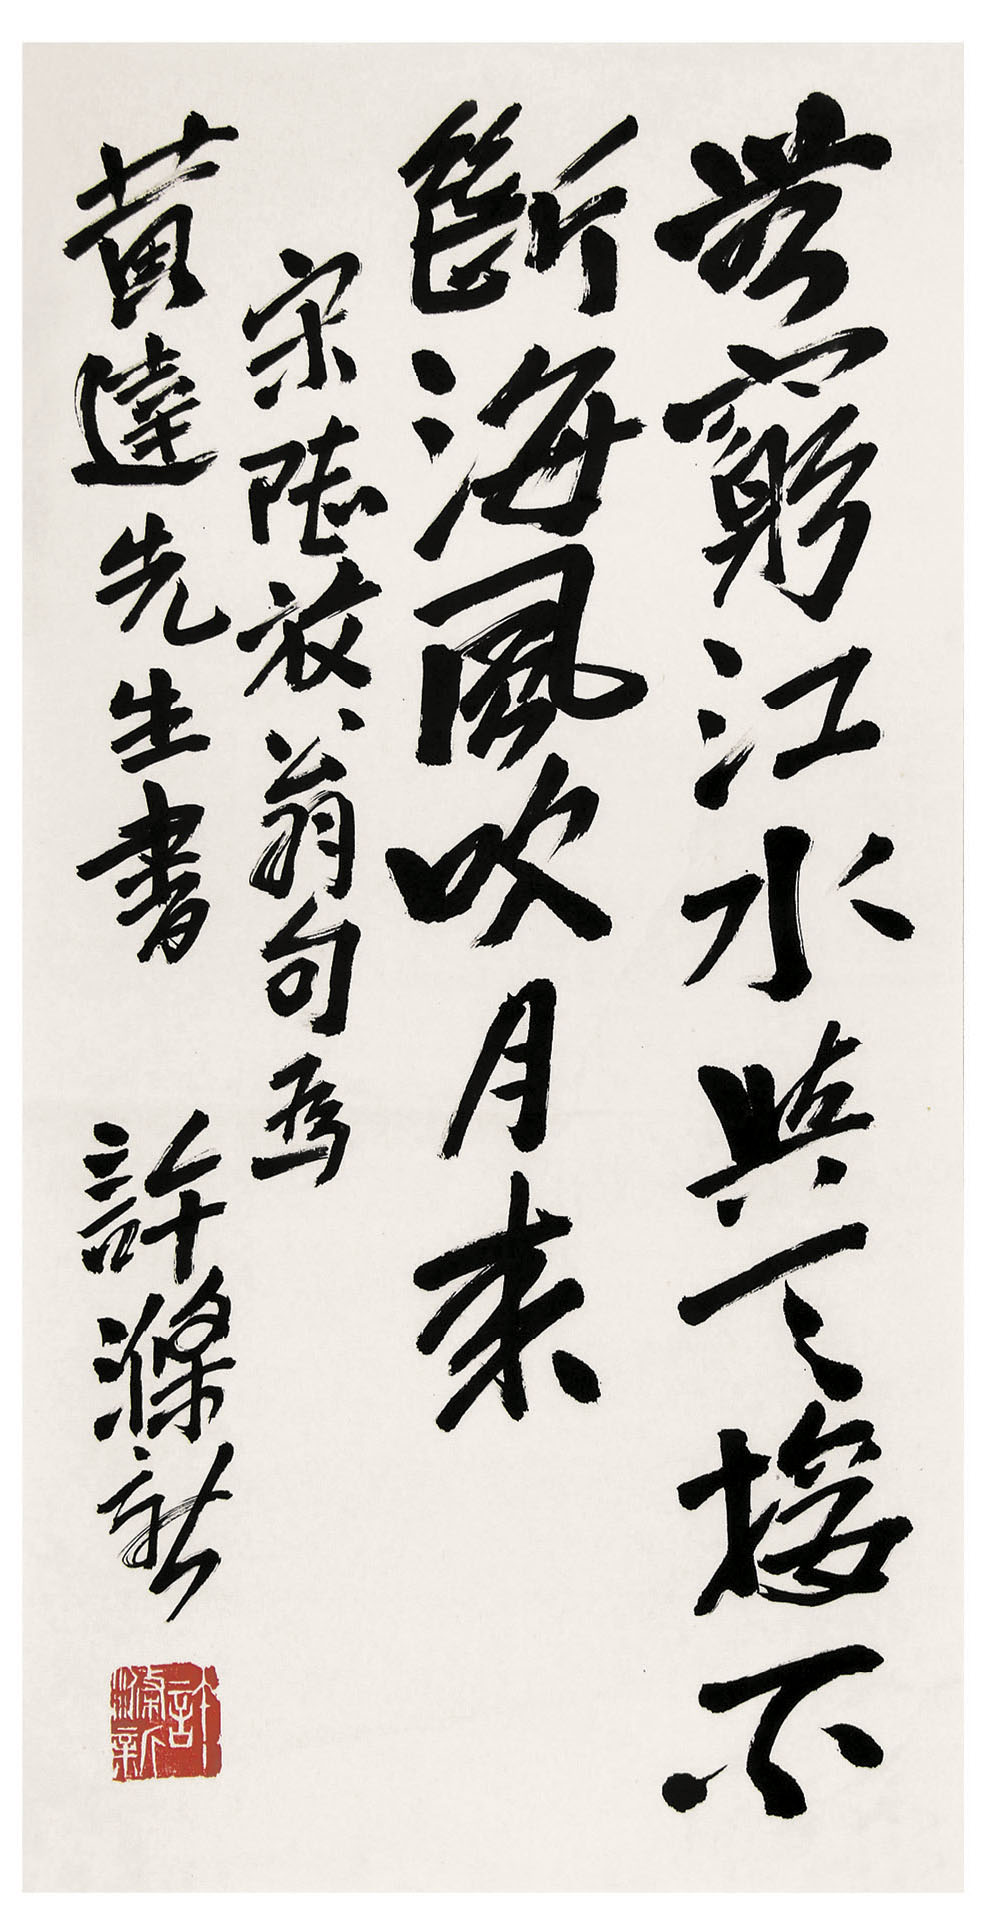 無窮江水與天接不
斷海風吹月来
宋陸放翁句為
黃達先生書 許滌新
許滌新